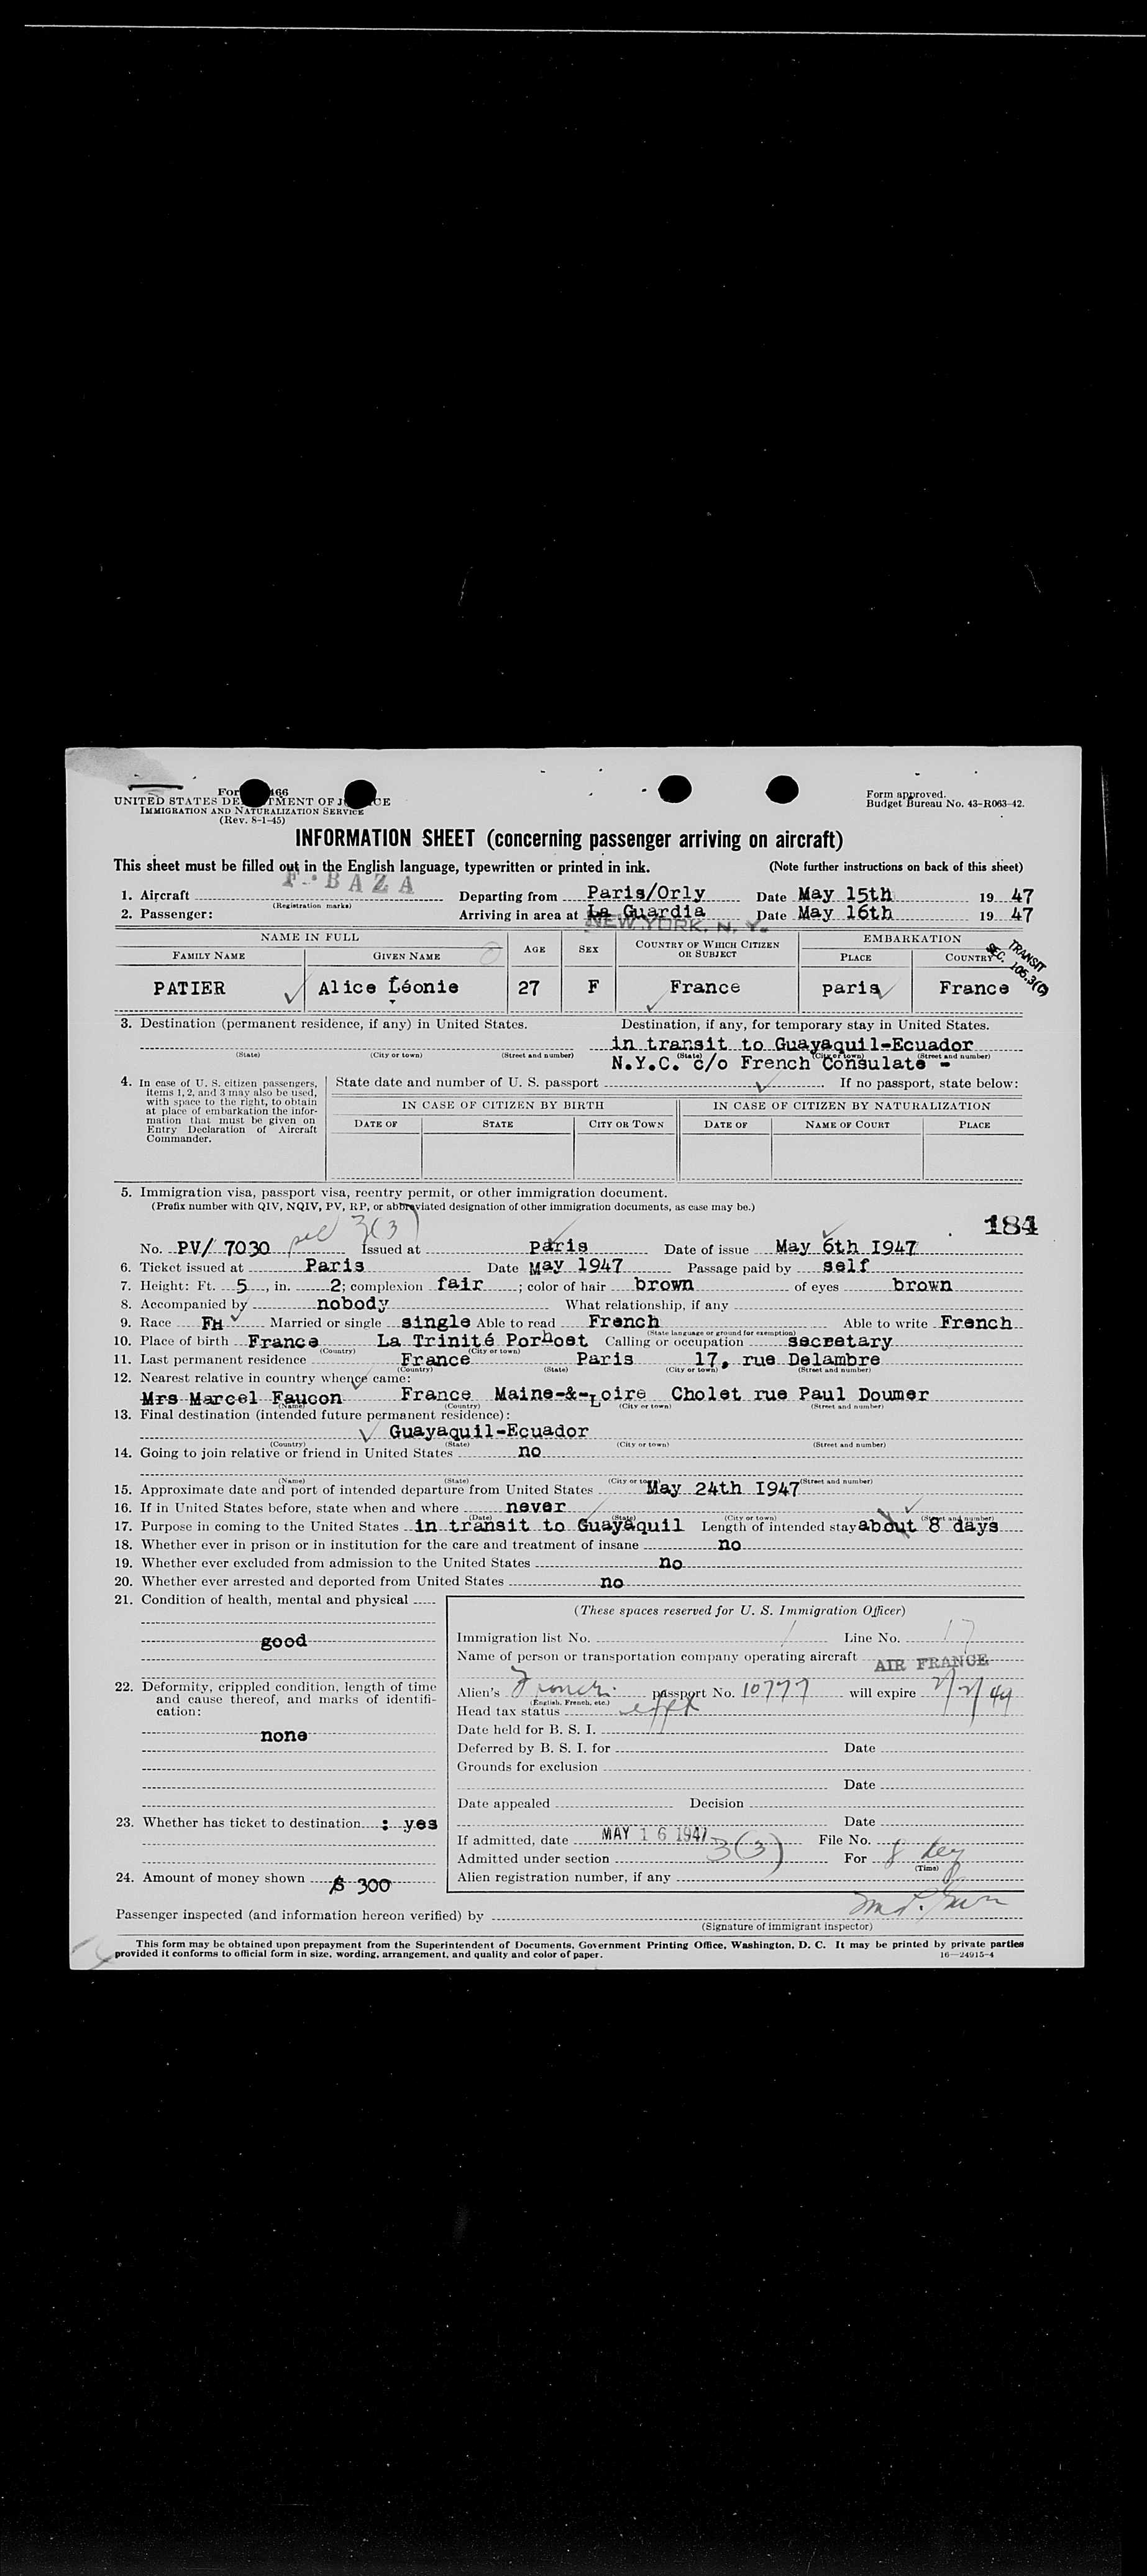 UNITED STATES DEPARTMENT OF JUSTICE
IMMIGRATION AND NATURALIZATION SERVICE
(Rev. 8-1-45)
Form approved.
Budget Bureau No. 43-R063-42.
INFORMATION SHEET (concerning passenger arriving on aircraft)
This sheet must be filled out in the English language, typewritten or printed in ink. (Note further instructions on back of this sheet)
1. Aircraft F-BAZA Departing from Paris/Orly Date May 15th 19 47
(Registration marks)
2. Passenger: Arriving in area at La Guardia Date May 16th 19 47
NEW YORK, N. Y.
NAME IN FULL AGE SEX COUNTRY OF WHICH CITIZEN OR SUBJECT EMBARKATION
FAMILY NAME GIVEN NAME PLACE COUNTRY
TRANSIT
SEC. 105.3(C)
PATIER Alice Léonie 27 F France paris France
3. Destination (permanent residence, if any) in United States. Destination, if any, for temporary stay in United States.
in transit to Guayaquil-Ecuador
(State) (City or town) (Street and number) (State) (City or town) (Street and number)
N.Y.C. c/o French Consulate -
4. In case of U. S. citizen passengers, items 1, 2, and 3 may also be used, with space to the right, to obtain at place of embarkation the information that must be given on Entry Declaration of Aircraft Commander.
State date and number of U. S. passport If no passport, state below:
IN CASE OF CITIZEN BY BIRTH IN CASE OF CITIZEN BY NATURALIZATION
DATE OF STATE CITY OR TOWN DATE OF NAME OF COURT PLACE
5. Immigration visa, passport visa, reentry permit, or other immigration document.
(Prefix number with QIV, NQIV, PV, RP, or abbreviated designation of other immigration documents, as case may be.)
3(3)
184
No. PV/ 7030 Issued at Paris Date of issue May 6th 1947
6. Ticket issued at Paris Date May 1947 Passage paid by self
7. Height: Ft. 5, in. 2; complexion fair; color of hair brown of eyes brown
8. Accompanied by nobody What relationship, if any
9. Race FH Married or single single Able to read French Able to write French
(State language or ground for exemption)
10. Place of birth France La Trinité Porhoet Calling or occupation secretary
(Country) (City or town)
11. Last permanent residence France Paris 17, rue Delambre
(Country) (State) (City or town) (Street and number)
12. Nearest relative in country whence came:
Mrs Marcel Faucon France Maine-&-Loire Cholet rue Paul Doumer
(Name) (Country) (City or town) (Street and number)
13. Final destination (intended future permanent residence):
Guayaquil-Ecuador
(Country) (State) (City or town) (Street and number)
14. Going to join relative or friend in United States no
(Name) (State) (City or town) (Street and number)
15. Approximate date and port of intended departure from United States May 24th 1947
16. If in United States before, state when and where never
(Date) (State) (City or town) (Street and number)
17. Purpose in coming to the United States in transit to Guayaquil Length of intended stay about 8 days
18. Whether ever in prison or in institution for the care and treatment of insane no
19. Whether ever excluded from admission to the United States no
20. Whether ever arrested and deported from United States no
21. Condition of health, mental and physical
good
22. Deformity, crippled condition, length of time and cause thereof, and marks of identification:
none
23. Whether has ticket to destination : yes
24. Amount of money shown $ 300
(These spaces reserved for U. S. Immigration Officer)
Immigration list No. / Line No. 17
Name of person or transportation company operating aircraft AIR FRANCE
Alien's French passport No. 10777 will expire 2/2/49
(English, French, etc.)
Head tax status
Date held for B. S. I.
Deferred by B. S. I. for Date
Grounds for exclusion
Date
Date appealed Decision
Date
If admitted, date MAY 16 1947 File No.
Admitted under section 3(3) For 8 day
(Time)
Alien registration number, if any
Passenger inspected (and information hereon verified) by
(Signature of immigrant inspector)
This form may be obtained upon prepayment from the Superintendent of Documents, Government Printing Office, Washington, D. C. It may be printed by private parties
provided it conforms to official form in size, wording, arrangement, and quality and color of paper. 16—24915-4